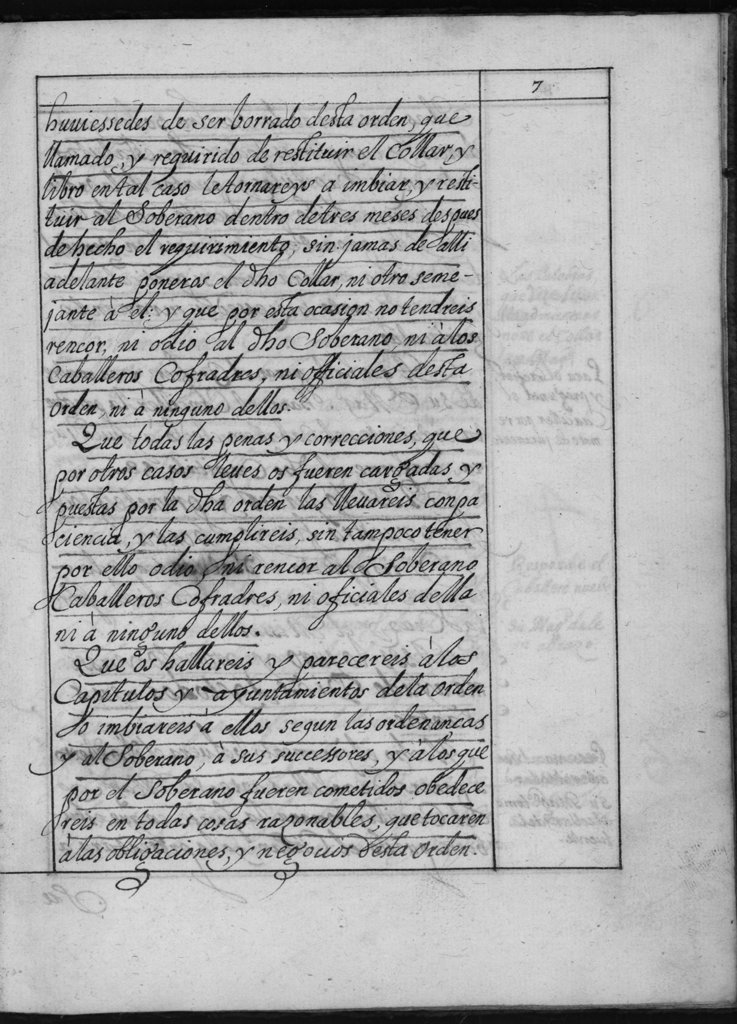 7
huuiessedes de ser borrado desta orden, que
llamado, y requirido de restituir el Collar, y
libro en tal caso le tornareys a imbiar, y resti-
tuir al Soberano dentro de tres meses despues
de hecho el requirimiento, sin jamas de alli
adelante poneros el dho Collar, ni otro seme-
jante à èl: y que por esta ocasion no tendreis
rencor, ni odio al dho Soberano, ni à los
Caballeros Cofradres, ni officiales desta
orden, ni a ninguno dellos.
Que todas las penas y correcciones, que
por otros casos lleues os fueren cargadas, y
puestas por la dha orden las lleuareis con pa
ciencia, y las cumplireis, sin tampoco tener
por ello odio, ni rencor al Soberano
Caballeros Cofradres, ni oficiales della
ni à ninguno dellos.
Que os hallareis y parecereis à los
Capitulos y ayuntamientos de la orden
o imbiareis à ellos segun las ordenancas
y al Soberano, à sus successores, y à los que
por el Soberano fueren cometidos obedece
reis en todas cosas raponables, que tocaren
à las obligaciones, y negocios desta orden.